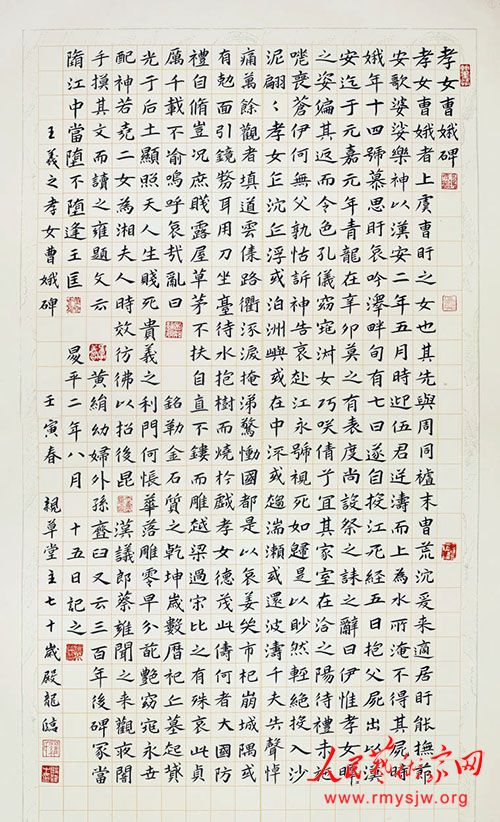 孝女曹娥碑
孝女曹娥者上虞曹盱之女也其先與周同祖末胄荒沉爰来適居盱能撫節
安歌婆娑樂神以漢安二年五月時迎伍君逆濤而上為水所淹不得其屍時
娥年十四號慕思盱哀吟澤畔旬有七日遂自投江死經五日抱父屍出以漢
安迄于元嘉元年青龍在辛卯莫之有表度尚設祭之誄之辭曰伊惟孝女曄
之姿偏其返而令色孔儀窈窕淑女巧咲倩兮宜其家室在洽之陽待禮未施
嗟喪蒼伊何無父孰怙訴神告哀赴江永號視死如歸是以眇然輕絕投入沙
泥翩〻孝女乍沉乍浮或泊洲嶼或在中流或趨湍瀨或還波濤千夫失聲悼
痛萬餘觀者填道雲集路衢泣淚掩涕驚慟國都是以哀姜哭市杞崩城隅或
有剋面引鏡剺耳用刀坐臺待水抱樹而燒於戲孝女德茂此儔何者大國防
禮自脩豈況庶賤露屋草茅不扶自直不鏤而雕越梁過宋比之有殊哀此貞
厲千載不渝嗚呼哀哉亂曰 銘勒金石質之乾坤歲數曆祀丘墓起墳
光于后土顯照天人生賤死貴義之利門何悵華落雕零早分葩艷窈窕永世
配神若堯二女為湘夫人時效彷彿以招後昆 漢議郎蔡雍聞之来觀夜闇
手摸其文而讀之雍題文云 黃絹幼婦外孫齏臼又云三百年後碑冢當
隋江中當堕不堕逢王匡 昇平二年八月 十五日記之
王羲之孝女曹娥碑 壬寅春 草堂主七十歲殿龍臨
人民藝術家网
www.rmysjw.org